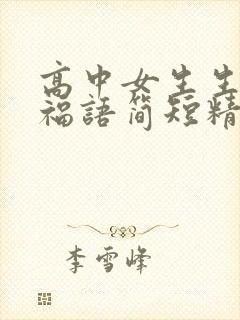 高中女生生
福語簡短精
李雪峰